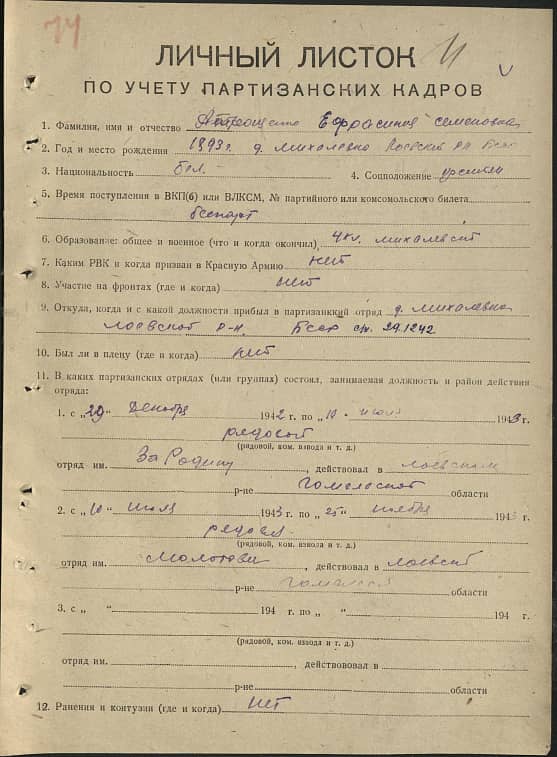 ЛИЧНЫЙ ЛИСТОК
ПО УЧЕТУ ПАРТИЗАНСКИХ КАДРОВ
1. Фамилия, имя и отчество Ефросиния Семеновна
2. Год и место рождения 1893г. д. Михалевка Лоевский р-н БССР
3. Национальность бел. 4. Соцположение
5. Время поступления в ВКП(б) или ВЛКСМ, № партийного или комсомольского билета
беспарт
6. Образование: общее и военное (что и когда окончил) 4 кл.
7. Каким РВК и когда призван в Красную Армию нит
8. Участие на фронтах (где и когда) нит
9. Откуда, когда и с какой должности прибыл в партизанккий отряд д. Михалевка
Лоевской р-н. БССР 29.12 42
10. Был ли в плену (где и когда) нит
11. В каких партизанских отрядах (или группах) состоял, занимаемая должность и район действия
отряда:
1. с „29" декабря 1942 г. по „10 - июля 1943 г.
редовой
(рядовой, ком. взвода и т. д.)
отряд им. За Родину , действовал в лоевском
р-не гомельской области
2. с „10" июля 1943 г. по „25" ноября 1943 г.
редовой
(рядовой, ком. взвода и т. д.)
отряд им. Молотова , действовал в лоевский
р-не гомельской области
3. с „ " 194 г. по „ " 194 г.
(рядовой, ком. взвода и т. д.)
отряд им. , действововал в
р-не области
12. Ранения и контузии (где и когда) нет